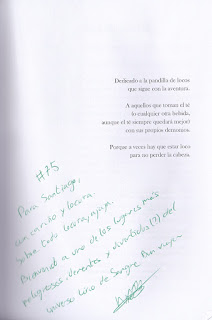 Dedicado a la pandilla de locos
que sigue con la aventura.
A aquellos que toman el té
(o cualquier otra bebida,
aunque el té siempre quedará mejor)
con sus propios demonios.
Porque a veces hay que estar loco
para no perder la cabeza.
#75
Para Santiago,
con cariño y locura.
Sobre todo locura, jajaja.
Bienvenido a uno de los lugares más
peligrosos, dementes y divertidos (?) del
universo. Luco de Sangre. Buen viaje.